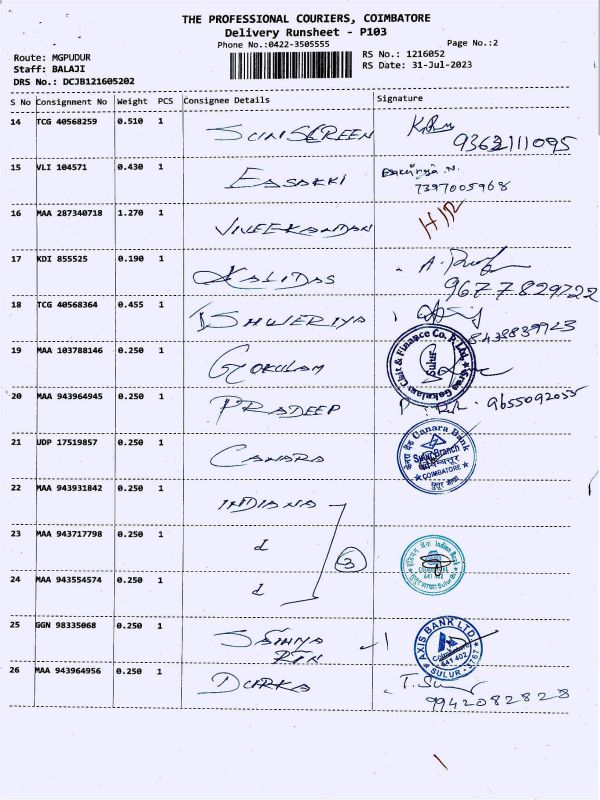 THE PROFESSIONAL COURIERS, COIMBATORE
Delivery Runsheet - P103
Phone No.:0422-3505555
Page No.:2
Route: MGPUDUR
Staff: BALAJI
DRS No.: DCJB121605202
RS No.: 1216052
RS Date: 31-Jul-2023
S No Consignment No Weight PCS Consignee Details Signature
14 TCG 40568259 0.510 1 SUNSCREEN
9362111095
15 VLI 104571 0.430 1 EASAKKI
7397005968
16 MAA 287340718 1.270 1 VIVEEKANDAN
17 KDI 855525 0.190 1 KALIDAS
9677829722
18 TCG 40568364 0.455 1 ISHWERIYA
8438839923
19 MAA 103788146 0.250 1 GOKULAM
Sree Gokulam Chit & Finance Co. P. Ltd.
Sulur
20 MAA 943964945 0.250 1 PRADEEP
9655092055
21 UDP 17519857 0.250 1 CANARA
Canara Bank
Sulur Branch
COIMBATORE
22 MAA 943931842 0.250 1 INDIANA
23 MAA 943717798 0.250 1
3
Indian Bank
641 402
24 MAA 943554574 0.250 1
25 GGN 98335068 0.250 1 SATHYA
AXIS BANK LTD.
Coimbatore
641 402
SULUR
26 MAA 943964956 0.250 1 DURKA
9942082828